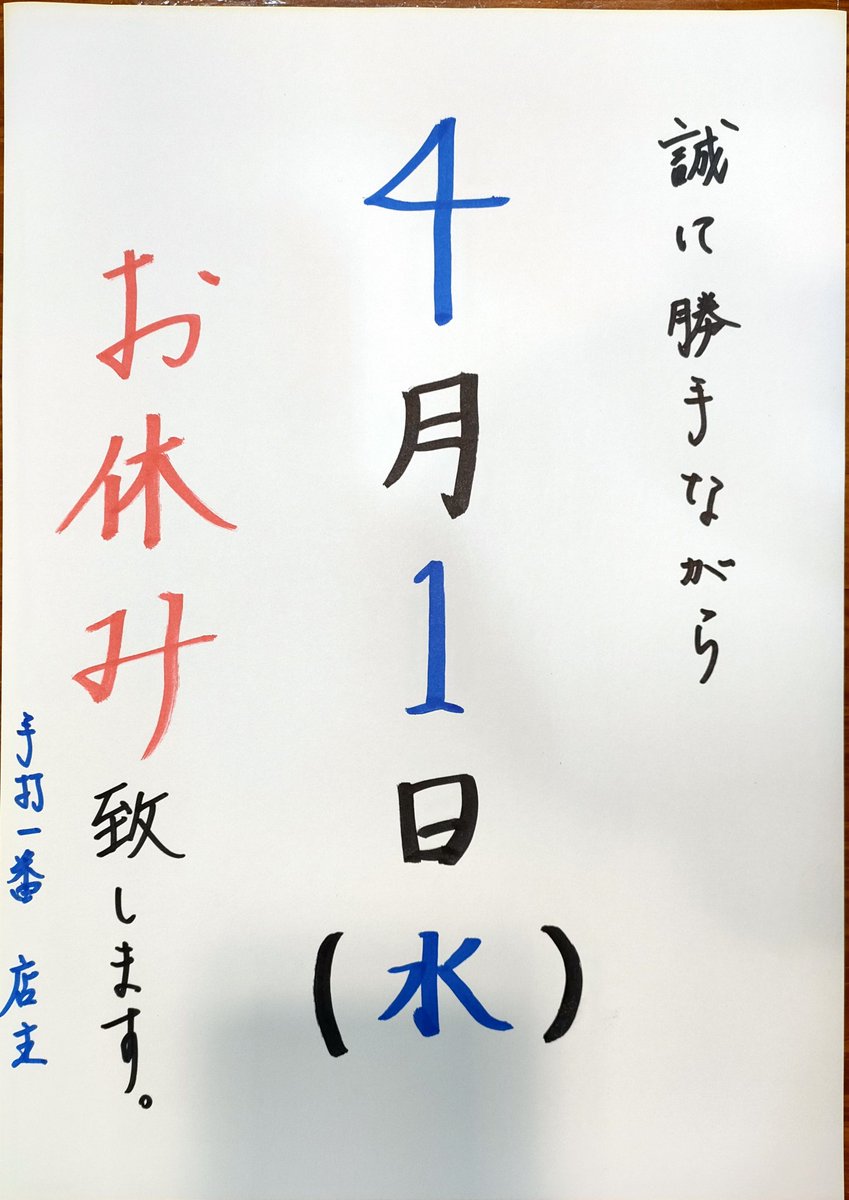 誠に勝手ながら
4月1日(水)
お休み致します。
手打一番 店主